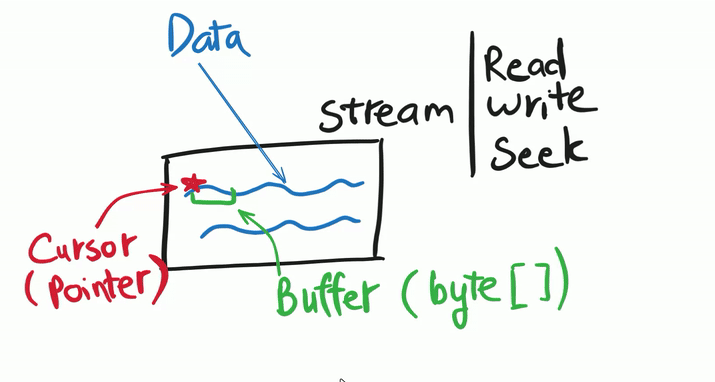 Data
Stream
Read
write
Seek
Cursor
(Pointer)
Buffer (byte[])